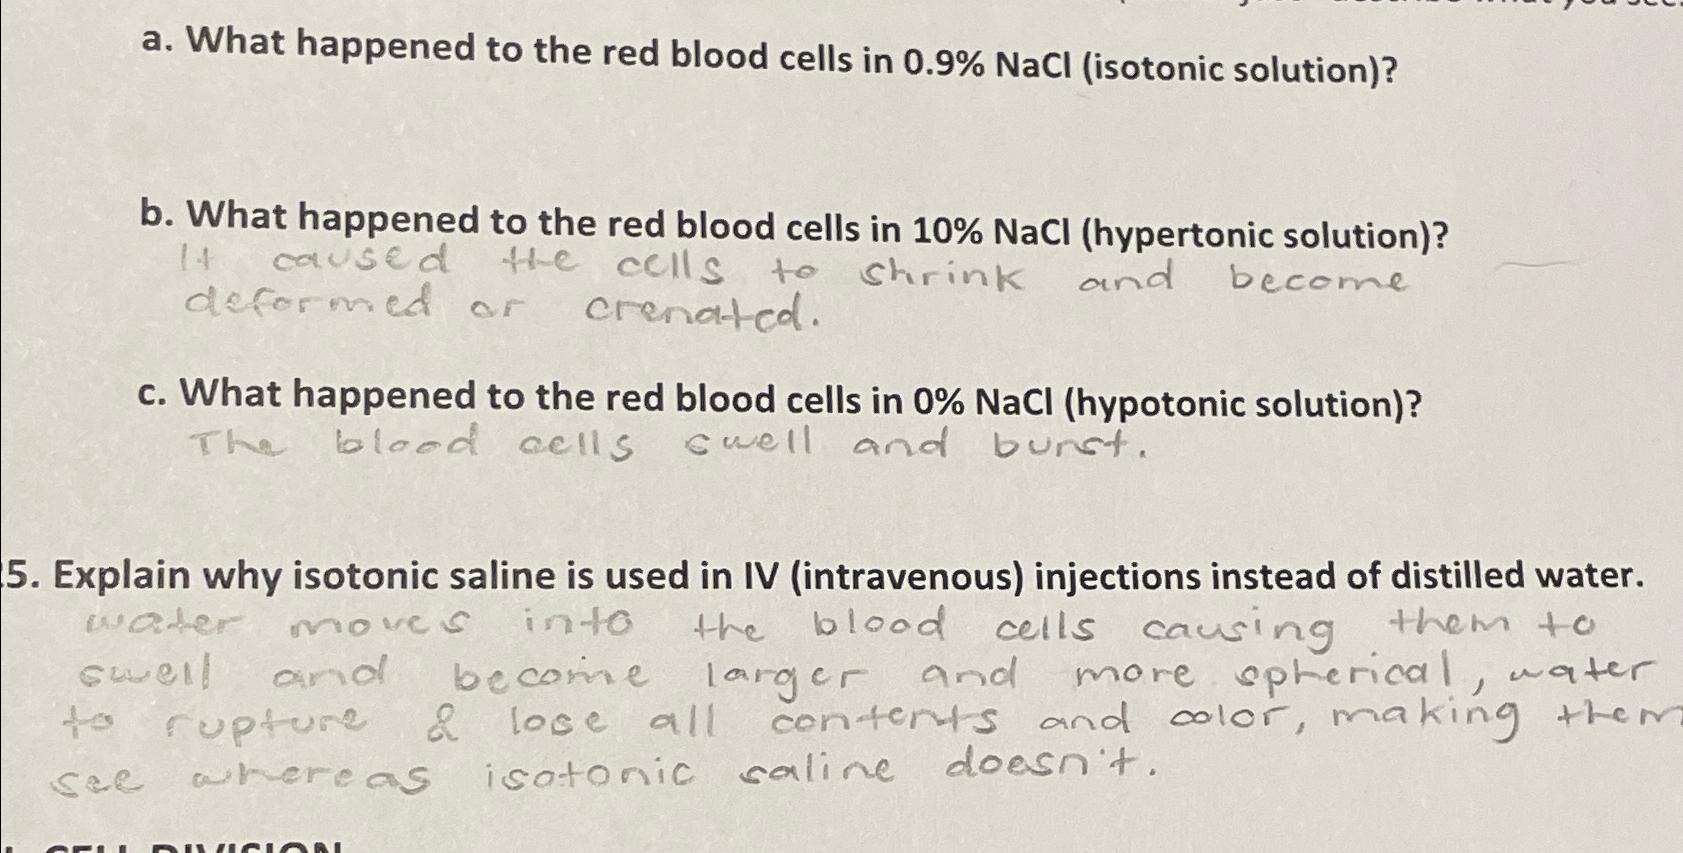 a. What happened to the red blood cells in 0.9% NaCl (isotonic solution)?
b. What happened to the red blood cells in 10% NaCl (hypertonic solution)?
It caused the cells to shrink and become
deformed or crenated.
c. What happened to the red blood cells in 0% NaCl (hypotonic solution)?
The blood cells swell and burst.
5. Explain why isotonic saline is used in IV (intravenous) injections instead of distilled water.
water moves into the blood cells causing them to
swell and become larger and more spherical, water
to rupture & lose all contents and color, making them
see whereas isotonic saline doesn't.
CELL DIVISION